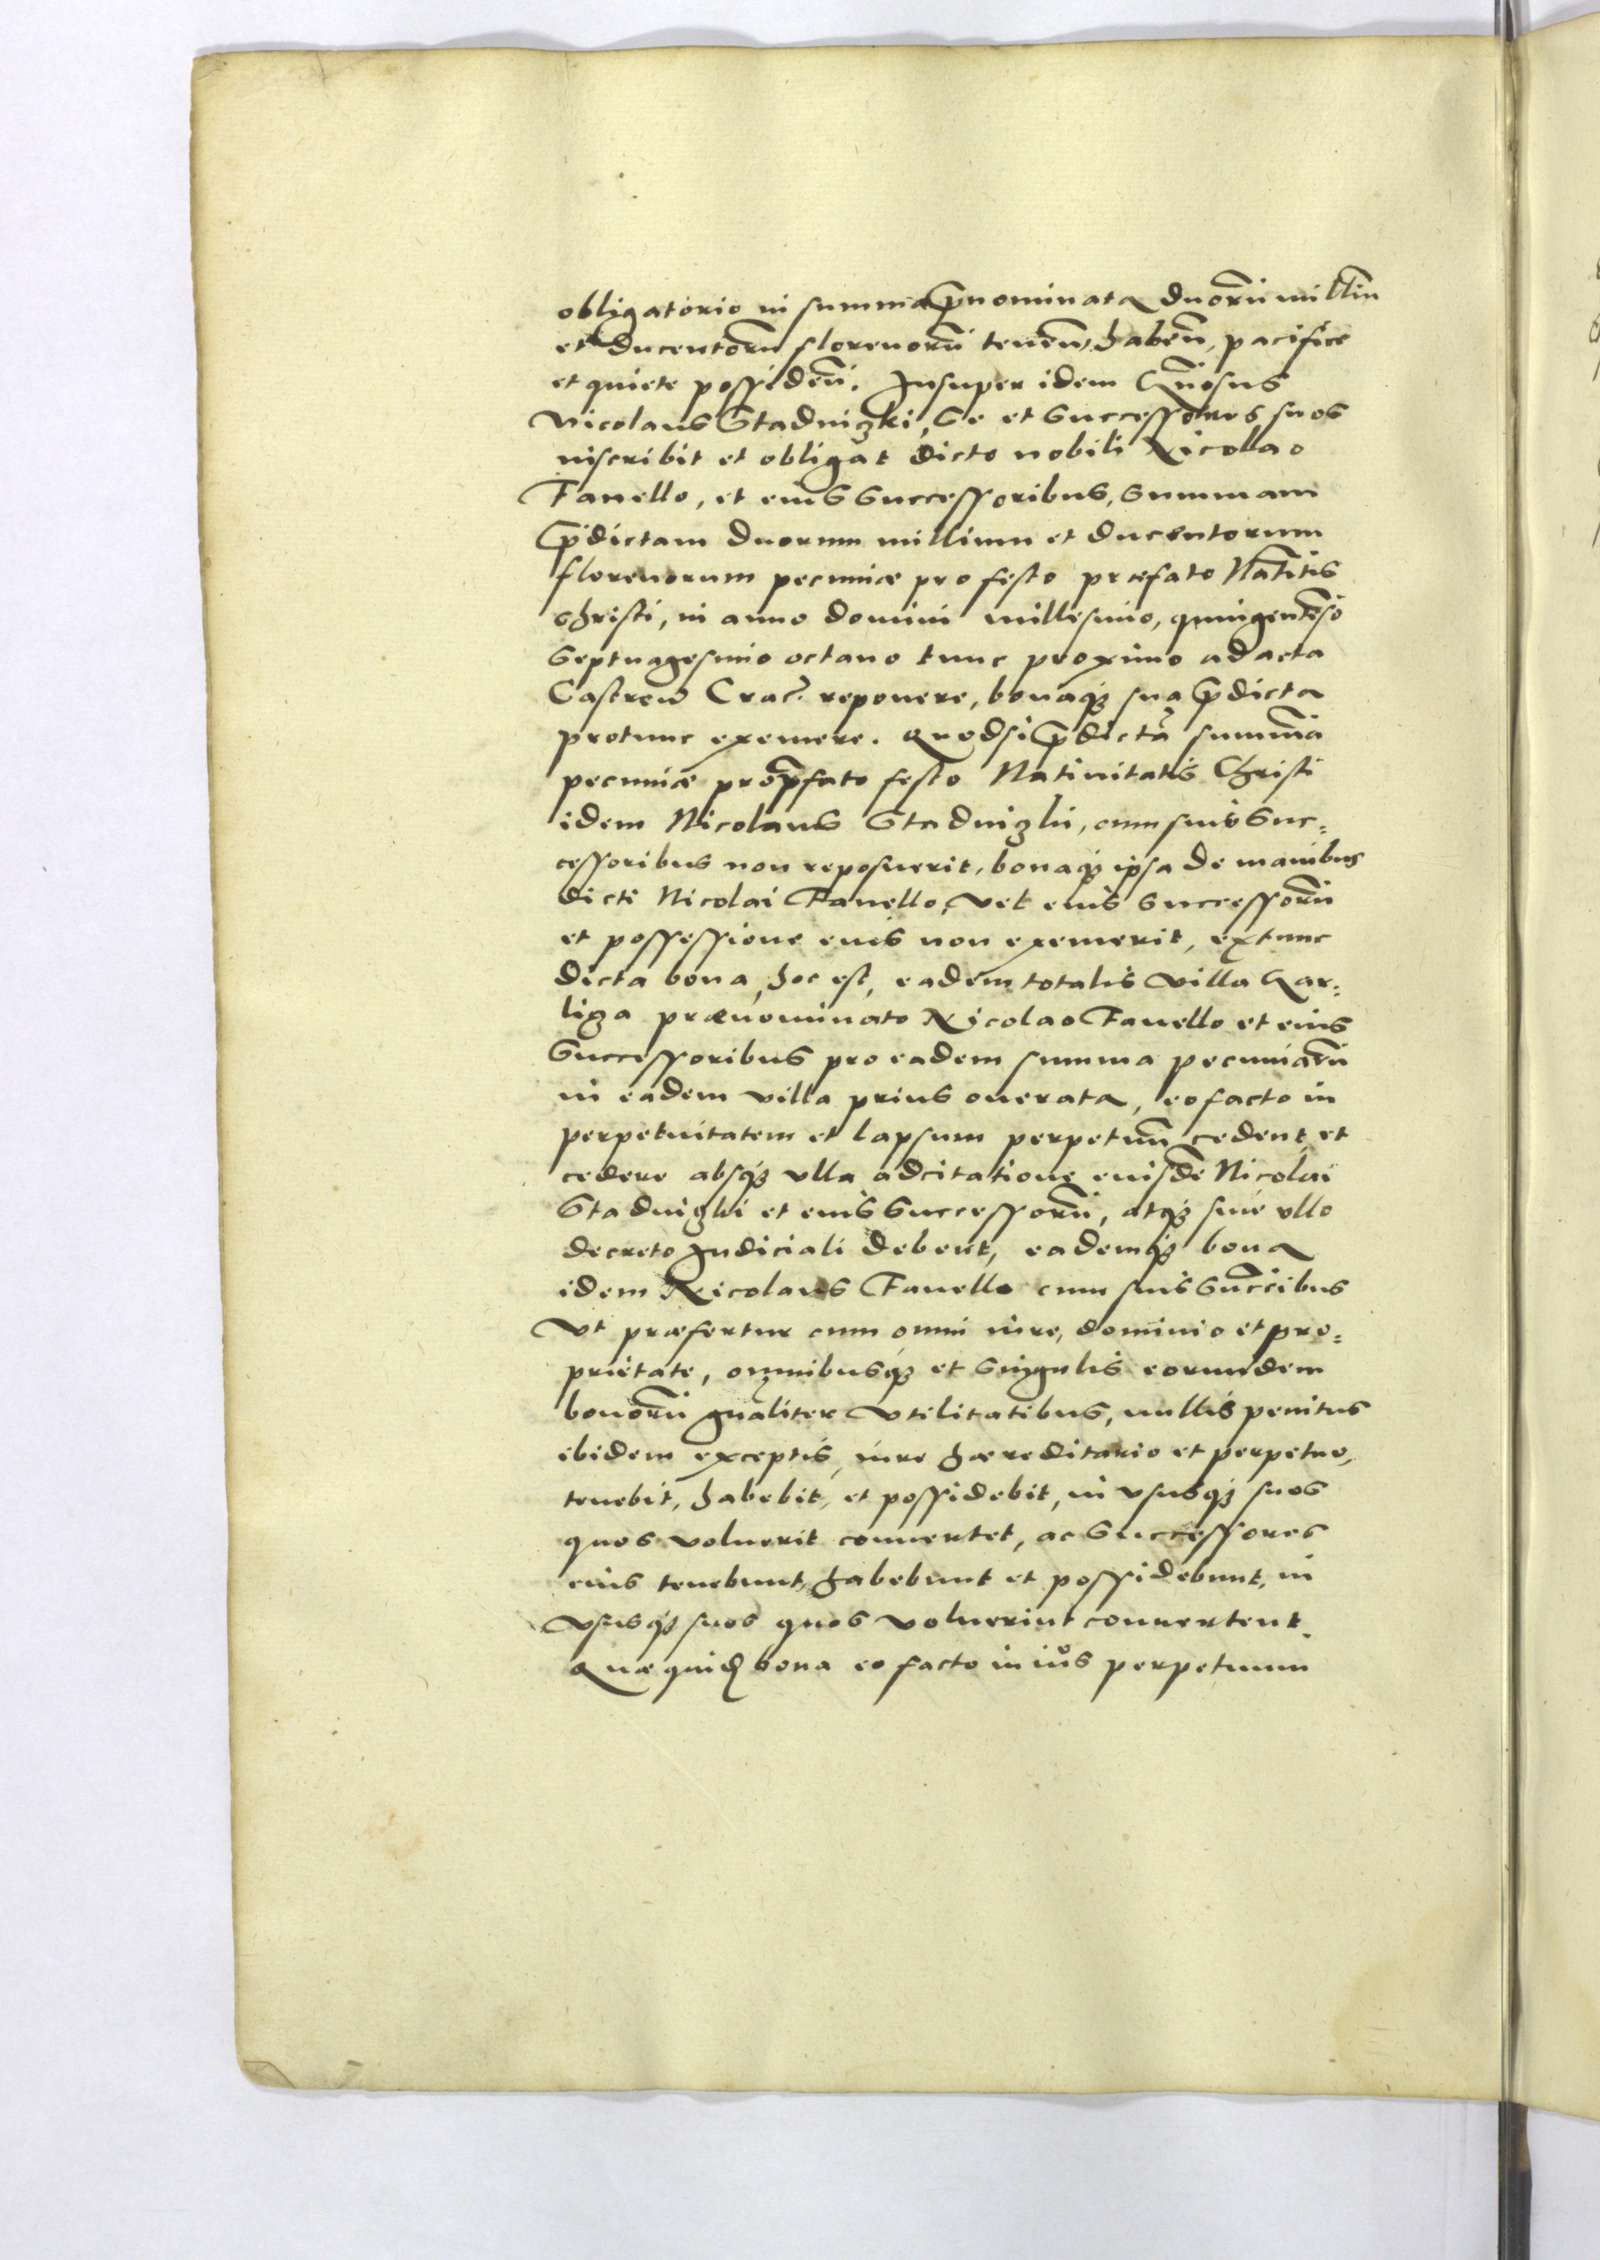 obligatorio in summa p̄nominata duorū milliū
et ducentorū florenorū tenen̄, haben̄, pacifice
et quiete possiden̄. Insuper idem Gn̄osus
Nicolaus Stadniczki, se et successores suos
inscribit et obligat dicto nobili Nicolao
Fanello, et eius successoribus, summam
p̄dictam duorum millium et ducentorum
florenorum pecuniæ pro festo præfato Natītis
Christi, in anno domini millesimo, quingentesīo
septuagesimo octavo tunc proximo ad acta
Castren̄ Crac̄. reponere, bonaqꝫ sua p̄dicta
protunc exemere. Quodsi p̄dictā summā
pecuniæ pro p̄fato festo Nativitatis Christi
idem Nicolaus Stadnizki, cum suis suc=
cessoribus non reposuerit, bonaqꝫ ipsa de manibus
dicti Nicolai Fanello, vel eius successorū
et possessione eius non exemerit, extunc
dicta bona, hoc est, eadem totalis villa Gar=
liga prænominato Nicolao Fanello et eius
successoribus pro eadem summa pecuniarū
in eadem villa prius onerata, eo facto in
perpetuitatem et lapsum perpetuū cedent et
cedere absqꝫ ulla adcitatione eiusdē Nicolai
Stadnizki et eius successorū, atqꝫ sine ullo
decreto Judiciali debent, eademqꝫ bona
idem Nicolaus Fanello cum suis succ̄ibus
Vt præfertur cum omni iure, dominio et pro=
prietate, omnibusqꝫ et singulis eorundem
bonorū gn̄aliter vtilitatibus, nullis penitus
ibidem exceptis, iure hæreditario et perpetuo,
tenebit, habebit, et possidebit, in vsusqꝫ suos
quos voluerit convertet, ac successores
eius tenebunt, habebunt et possidebunt, in
vsusqꝫ suos quos voluerint convertent.
Quæ quid̄ bona eo facto in iůs perpetuum